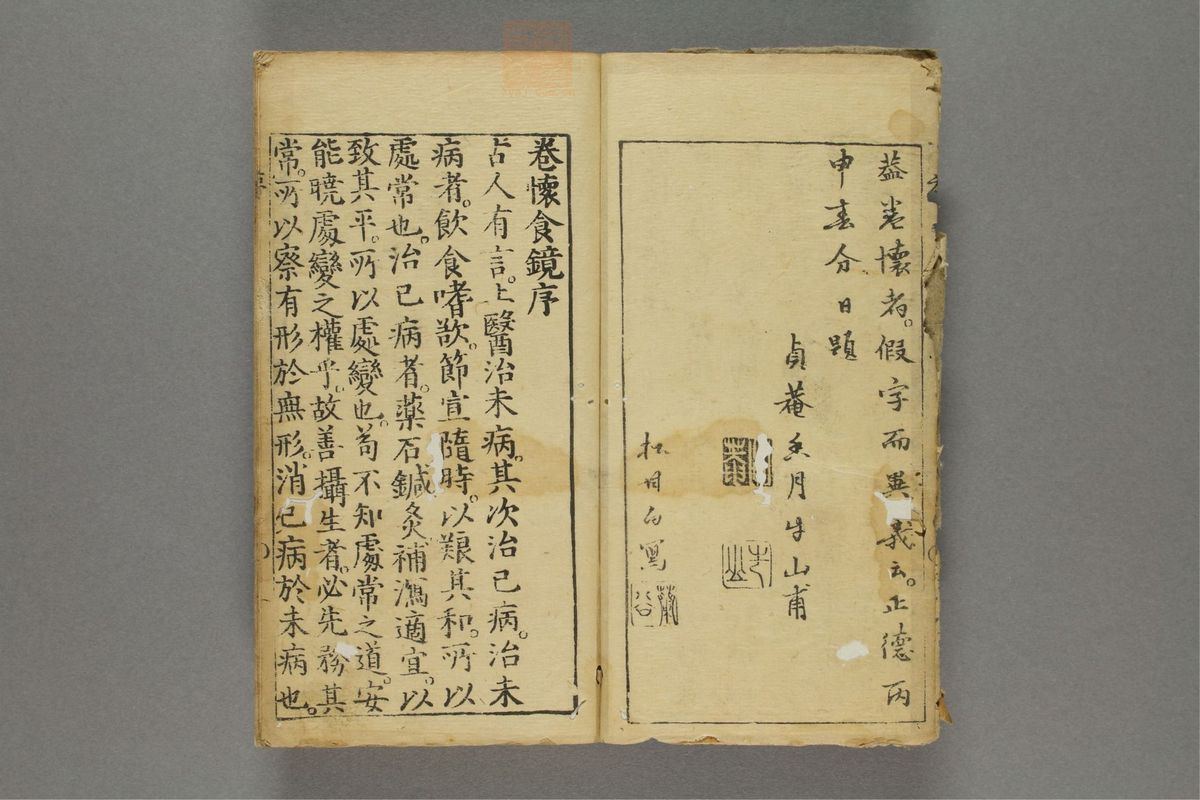 益卷懷者。假字而異義云。正德丙
申春分日題
貞菴香月牛山甫
牛山
卷懷食鏡序
古人有言。上醫治未病。其次治已病。治未
病者。飲食嗜欲。節宣隨時。以艱其和。所以
處常也。治已病者。藥石鍼灸。補瀉適宜。以
致其平。所以處變也。苟不知處常之道。安
能曉處變之權乎。故善攝生者。必先務其
常。所以察有形於無形。消已病於未病也。